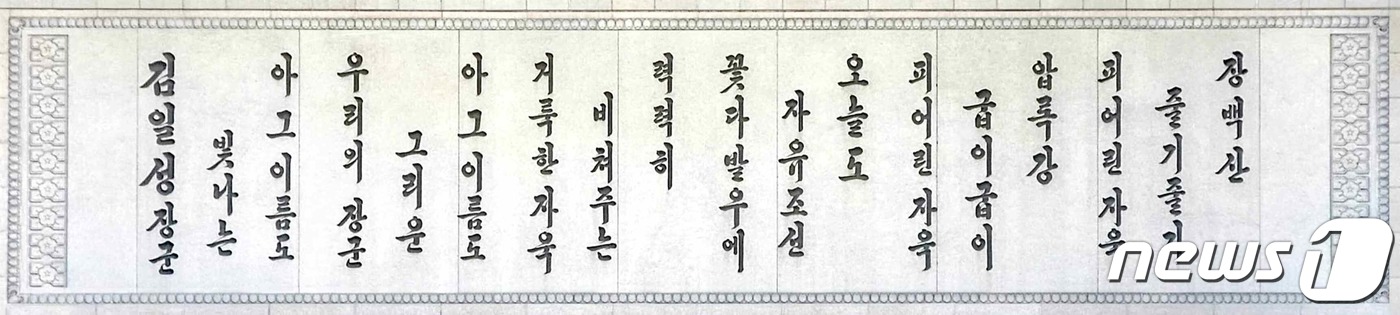 장백산
줄기줄기
피어린자욱
압록강
굽이굽이
피어린자욱
오늘도
자유조선
꽃다발우에
력력히
비쳐주는
거룩한자욱
아그이름도
그리운
우리의장군
아그이름도
빛나는
김일성장군
news1